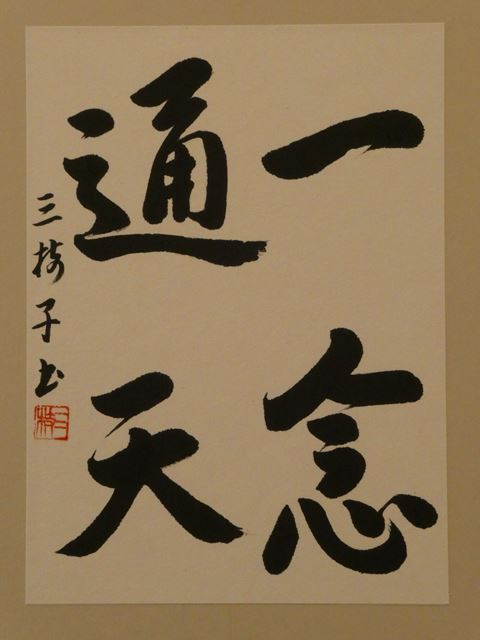 一念
通天
三椅子书